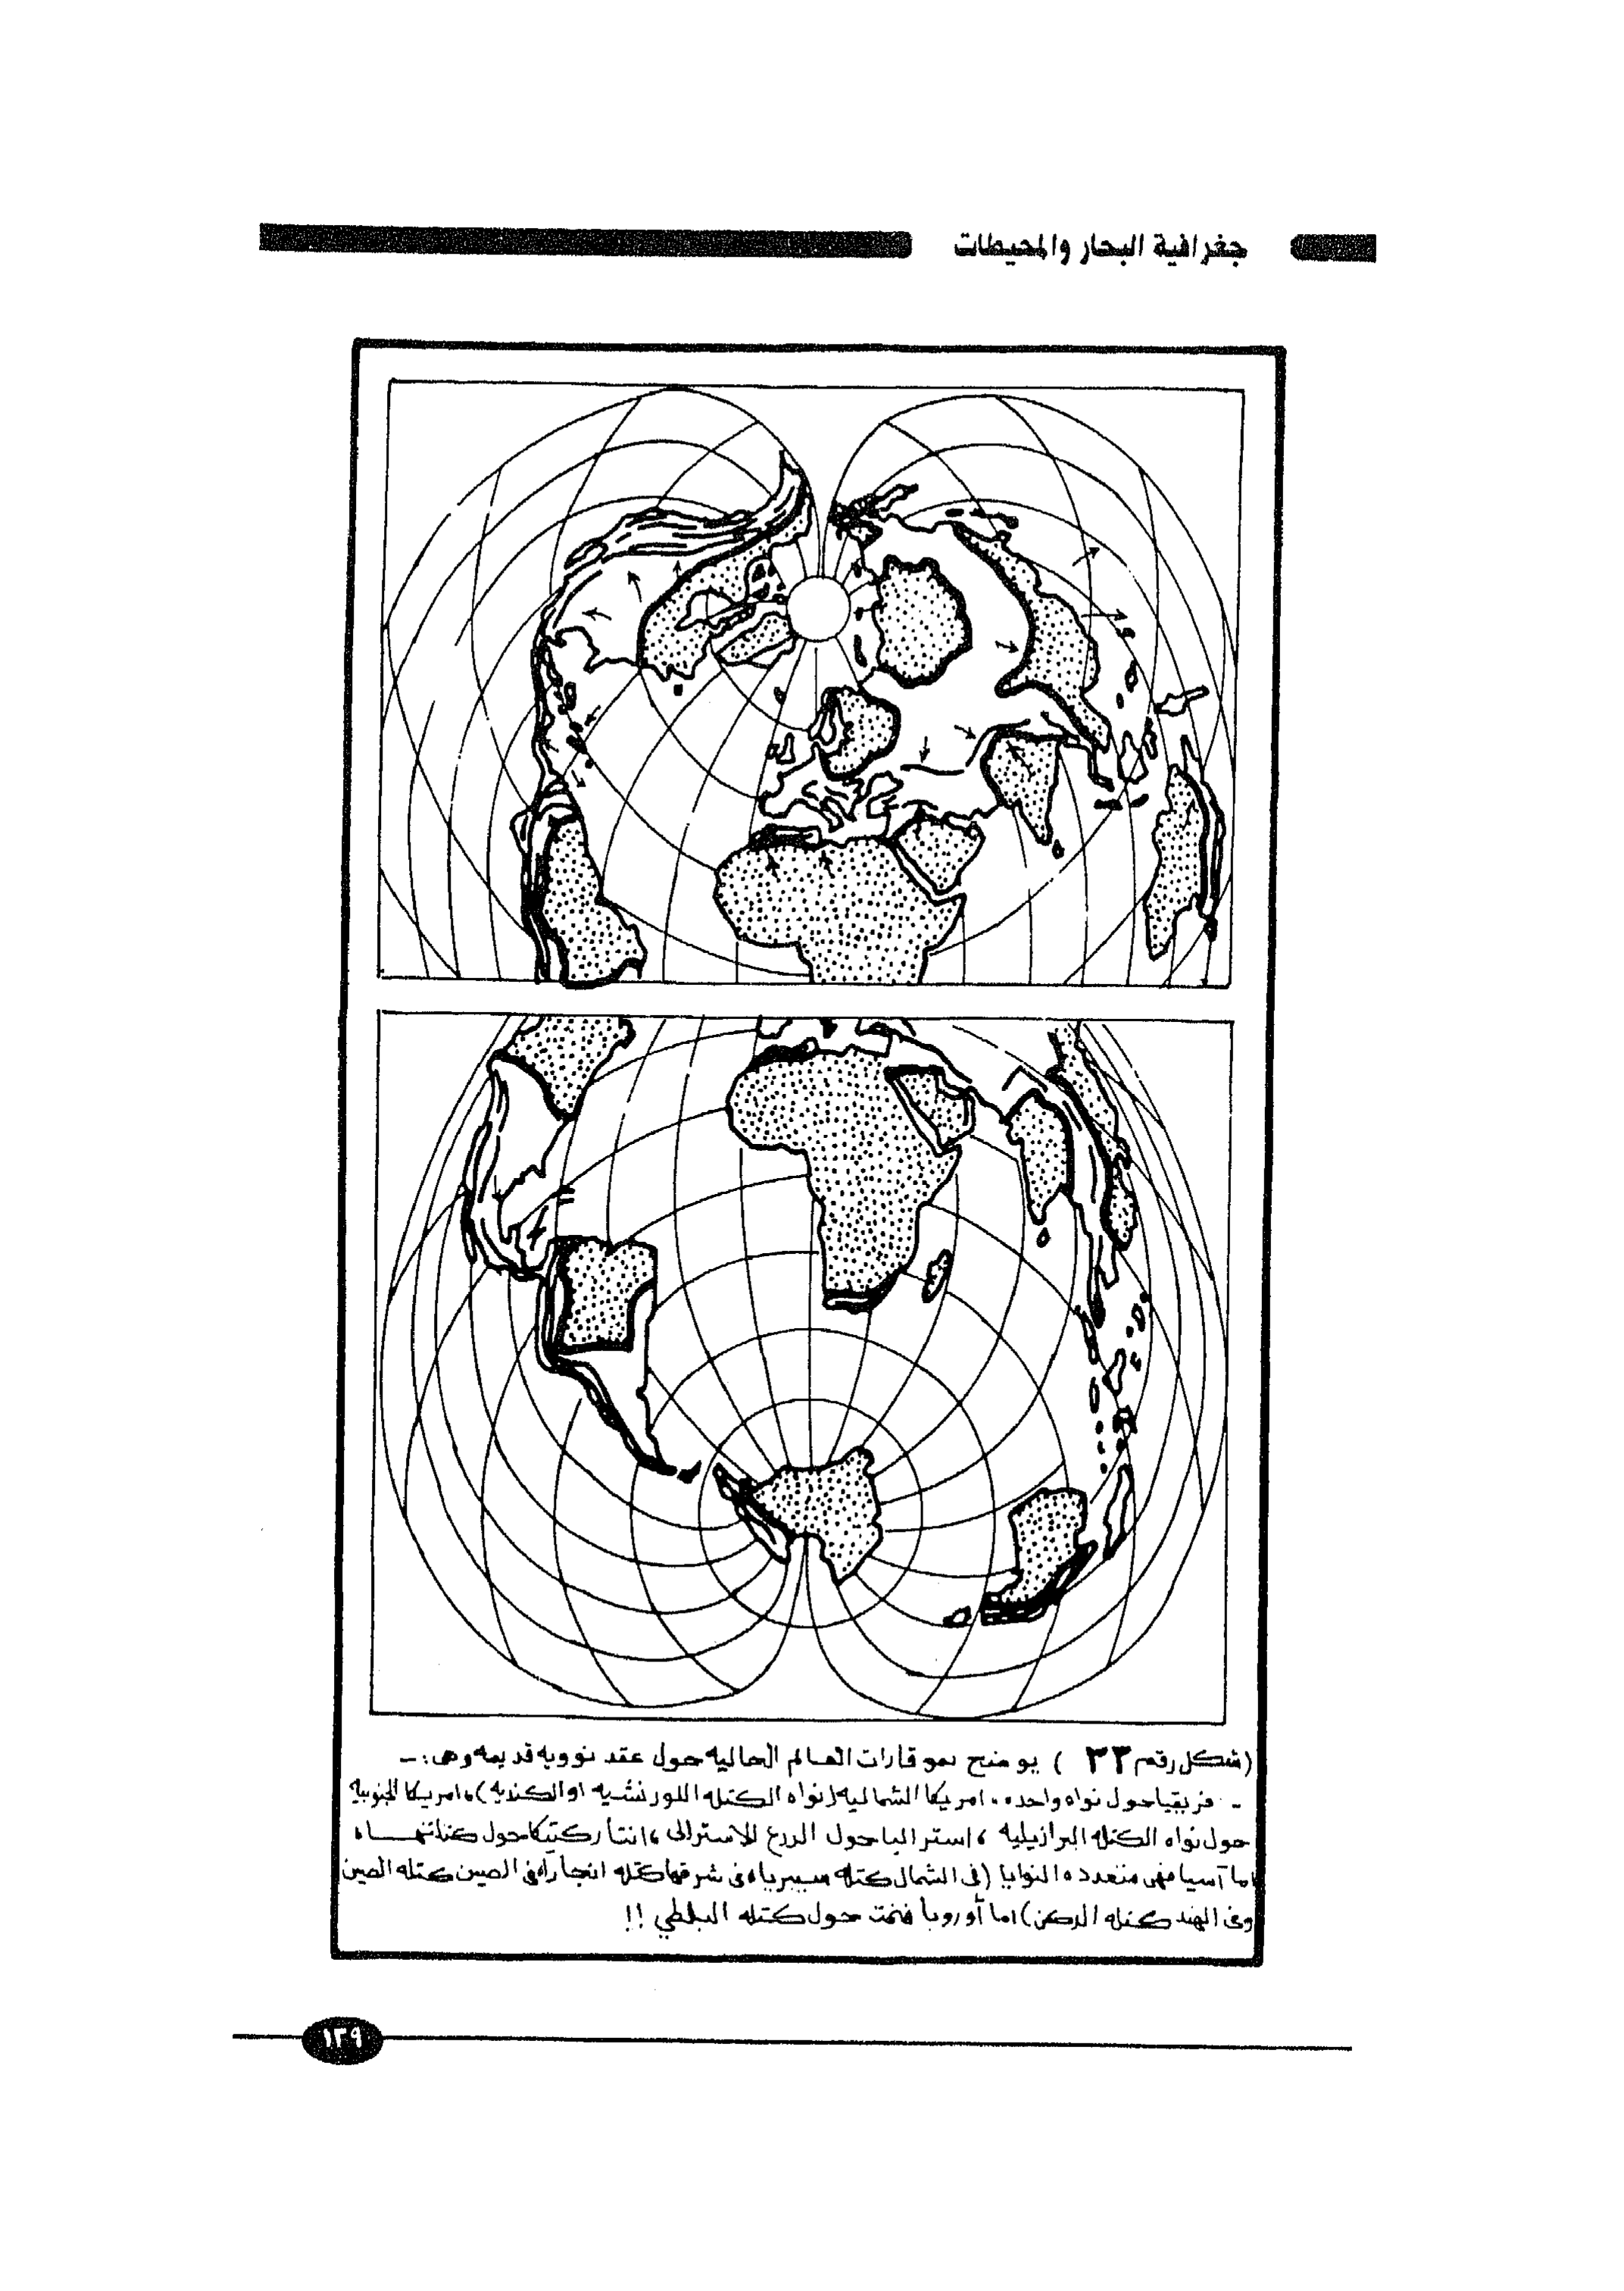 جغرافية البحار والمحيطات
(شكل رقم ٣٣ ) يوضح نمو قارات العالم الحاليه حول عقد نوويه قديمه وهى :-
- فريقيا حول نواه واحده ، امريكا الشماليه (نواه الكتله اللورنشيه او الكنديه)، امريكا الجنوبية
حول نواه الكتله البرازيليه ، استراليا حول الدرع الاسترالى ، انتاركتيكا حول كتلتها
اما آسيا فهى متعدده النوايا (فى الشمال كتله سيبريا، فى شرقها كتله انجارا، فى الصين كتله الصين
وفى الهند كتله الدكن) اما أوروبا فنمت حول كتله البلطي !!
١٣٩